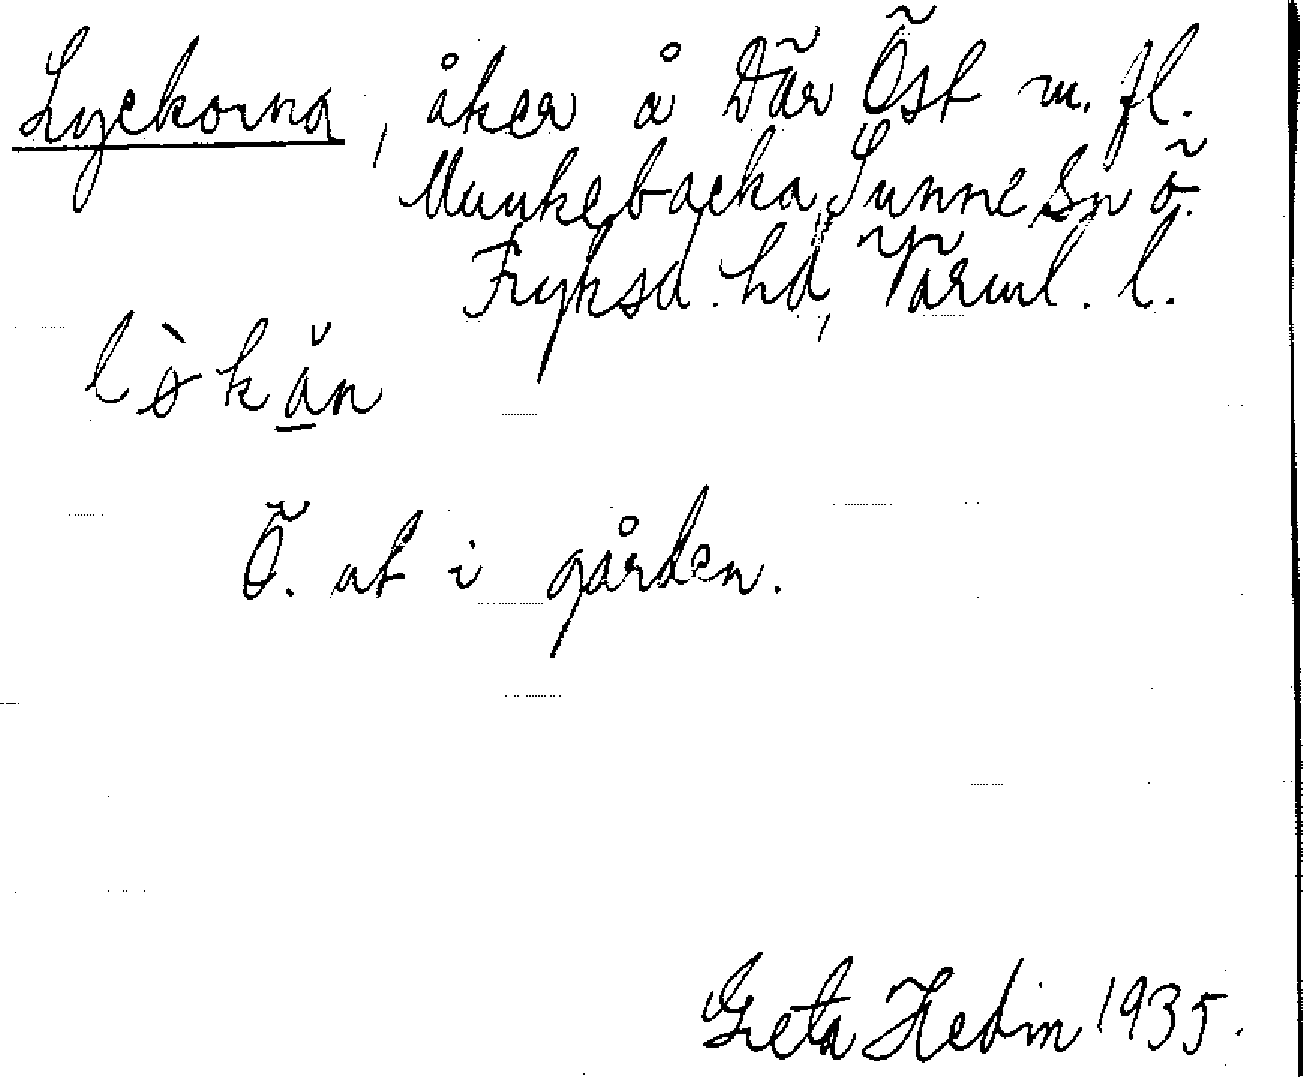 Lyckorna, åker å Där Öst m. fl.
Munkebacka, Sunne sn Ö.
Fryksd. hd, Värml. l.
lø̀kǎ̲n
Ö. at i gården.
Greta Hedin 1935.